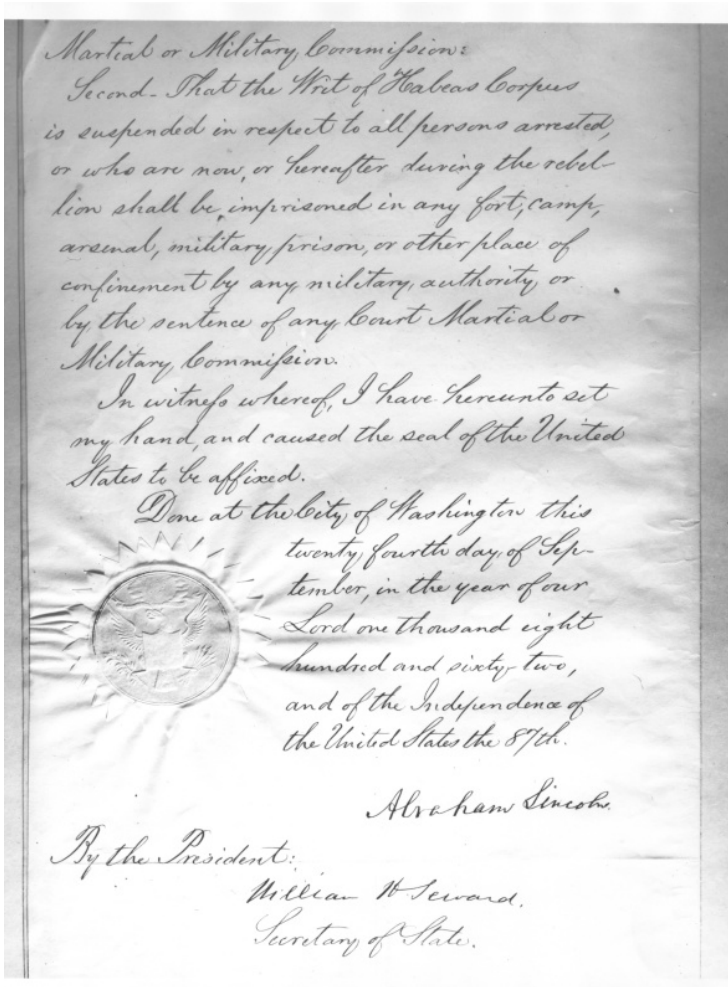 Martial or Military Commission:
Second - That the Writ of Habeas Corpus
is suspended in respect to all persons arrested,
or who are now, or hereafter during the rebel-
lion shall be, imprisoned in any fort, camp,
arsenal, military prison, or other place of
confinement by any military authority or
by the sentence of any Court Martial or
Military Commission.
In witness whereof, I have hereunto set
my hand, and caused the seal of the United
States to be affixed.
Done at the City of Washington this
twenty fourth day of Sep-
tember, in the year of our
Lord one thousand eight
hundred and sixty-two,
and of the Independence of
the United States the 87th.
Abraham Lincoln.
By the President:
William H Seward.
Secretary of State.